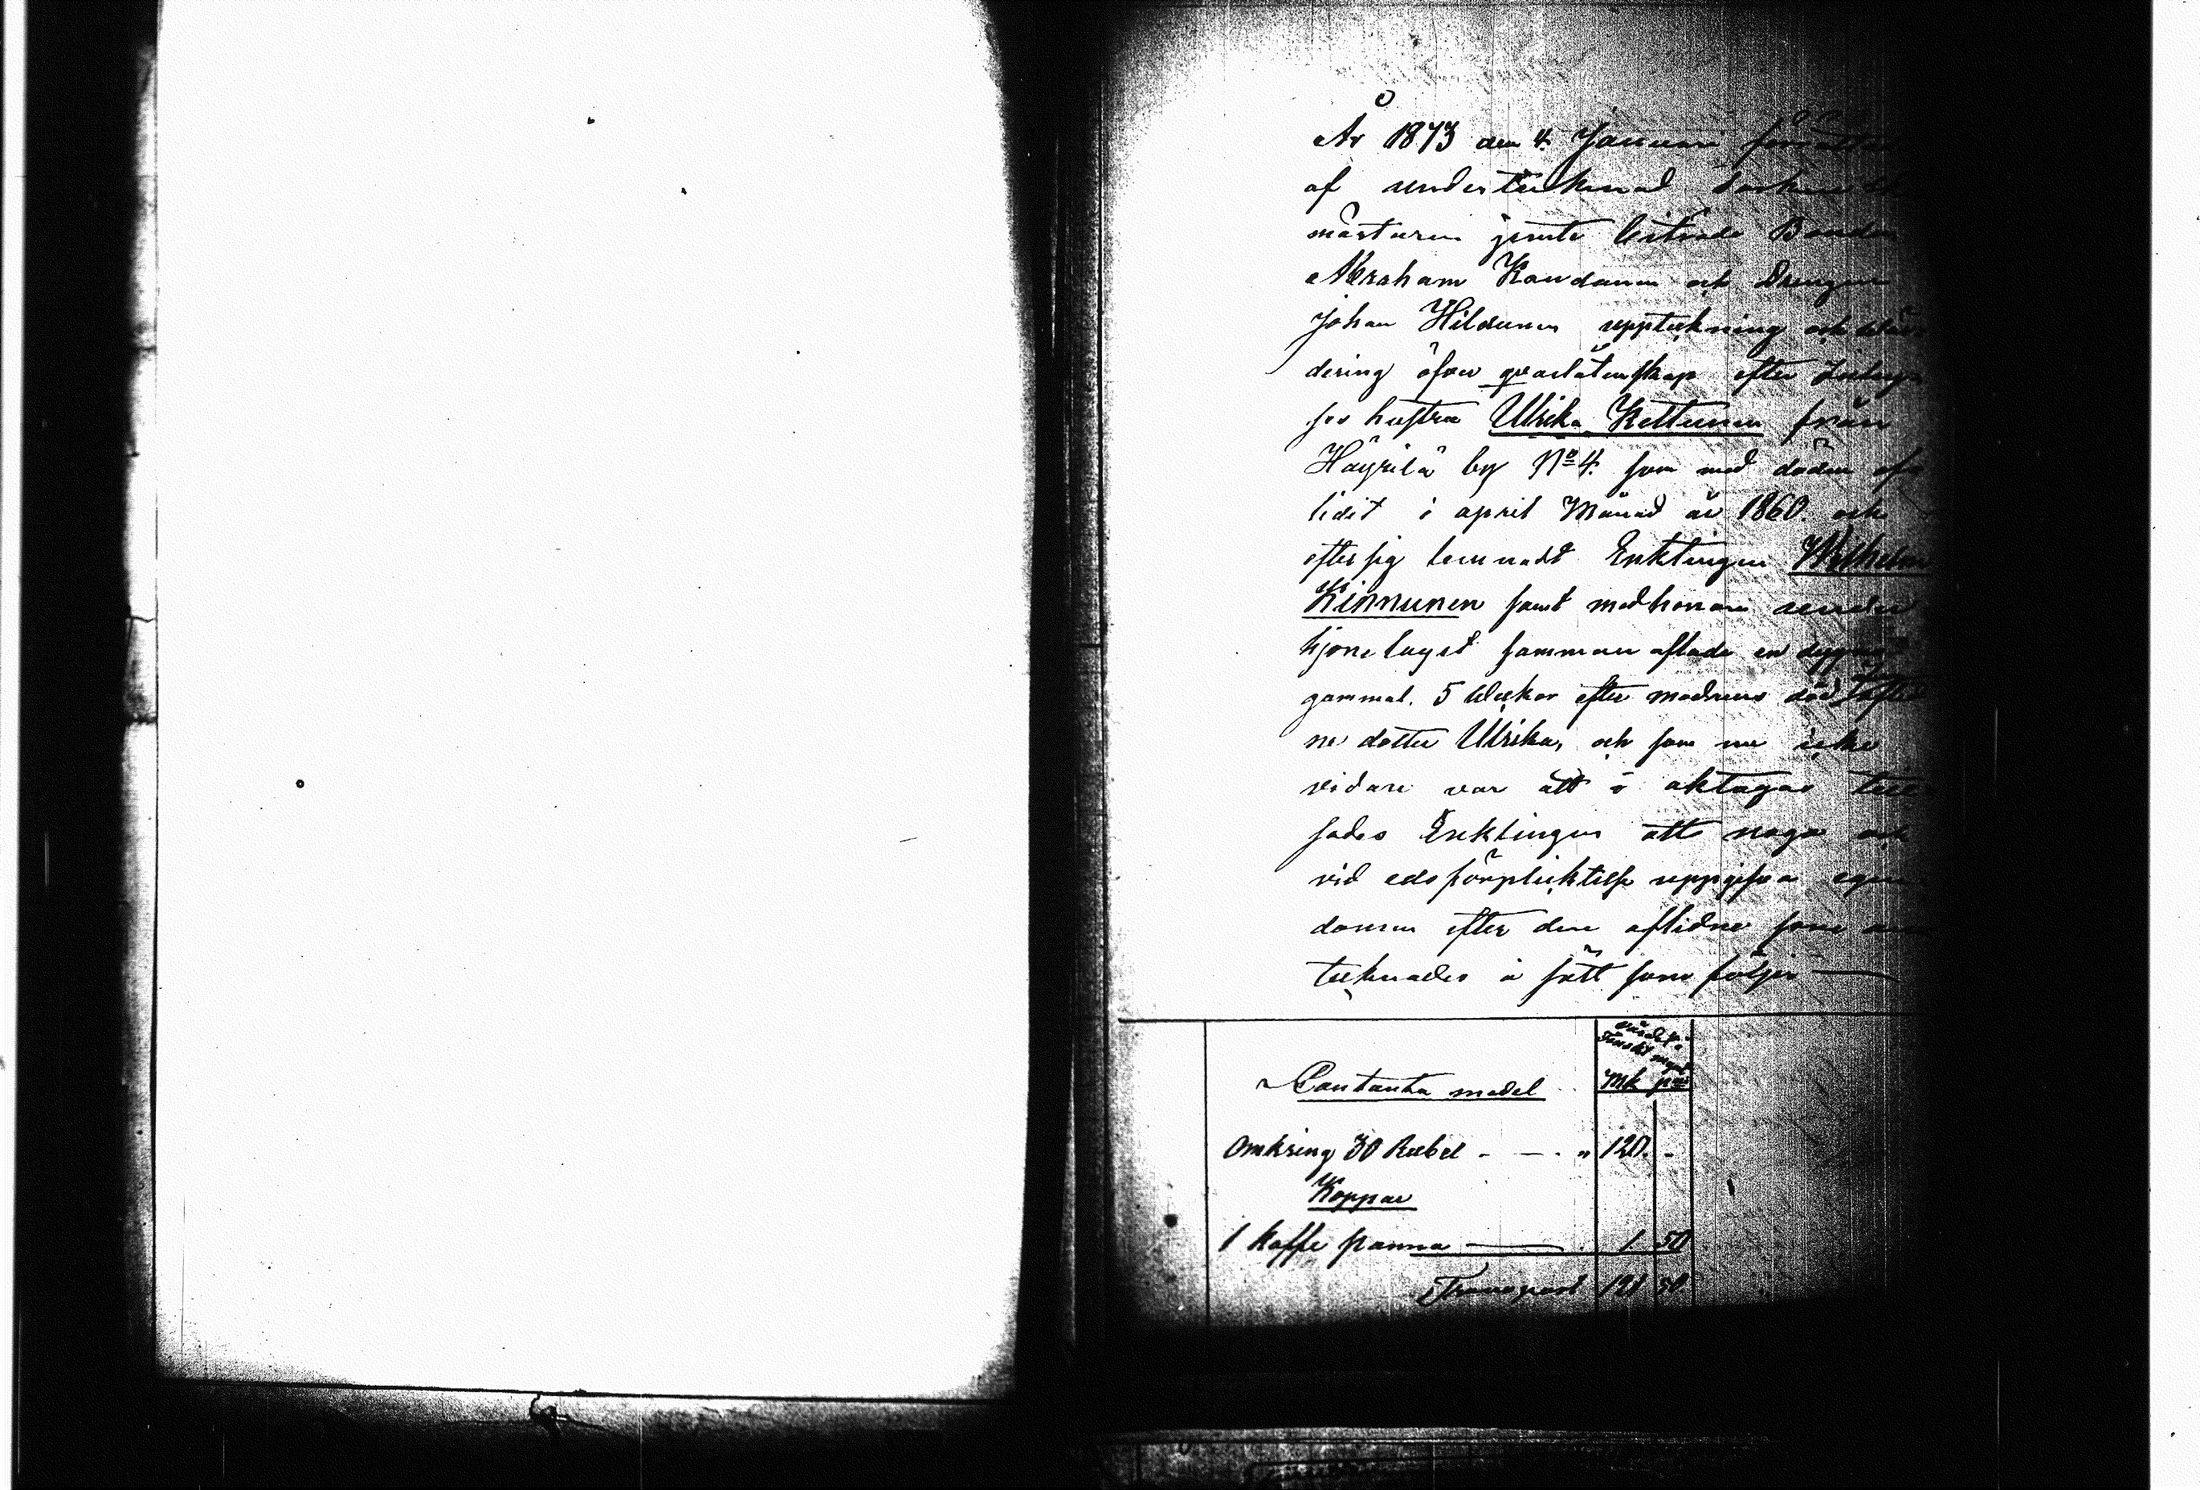 År 1873 den 4. Januari förrättades
af undertecknad Sockneskrif
mästaren jemte biträde Bonden
Abraham Kandanen och Drengen
Johan Hildunen uppteckning och wär
dering öfwer qwarlåtenskap efter Inhyse
ses hustru Ulrika Kettunen från
Häyrilä by No 4. som med döden af
lidit i april Månad år 1860. och
efter sig lemnadt Enklingen Wilhelm
Kinnunen samt med honom under
hjonelaget samman aflade en
gammal. 5 Weckor efter modrens död aflid
ne dotter Ulrika, och som nu icke
vidare var att i akttagas till
sades Enklingen att noga och
vid edsförpliktelse uppgifva egen
domen efter den aflidne som an
tecknades i sätt som följer —
Värdet i
Finskt mynt
Contanta medel Mk pni
Omkring 30 Rubel - — - " 120. -
Koppar
1 kaffe panna — 1 50
Transport 121 50